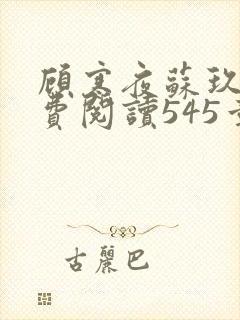 顧寒夜蘇玖
費閱讀545章
古麗巴